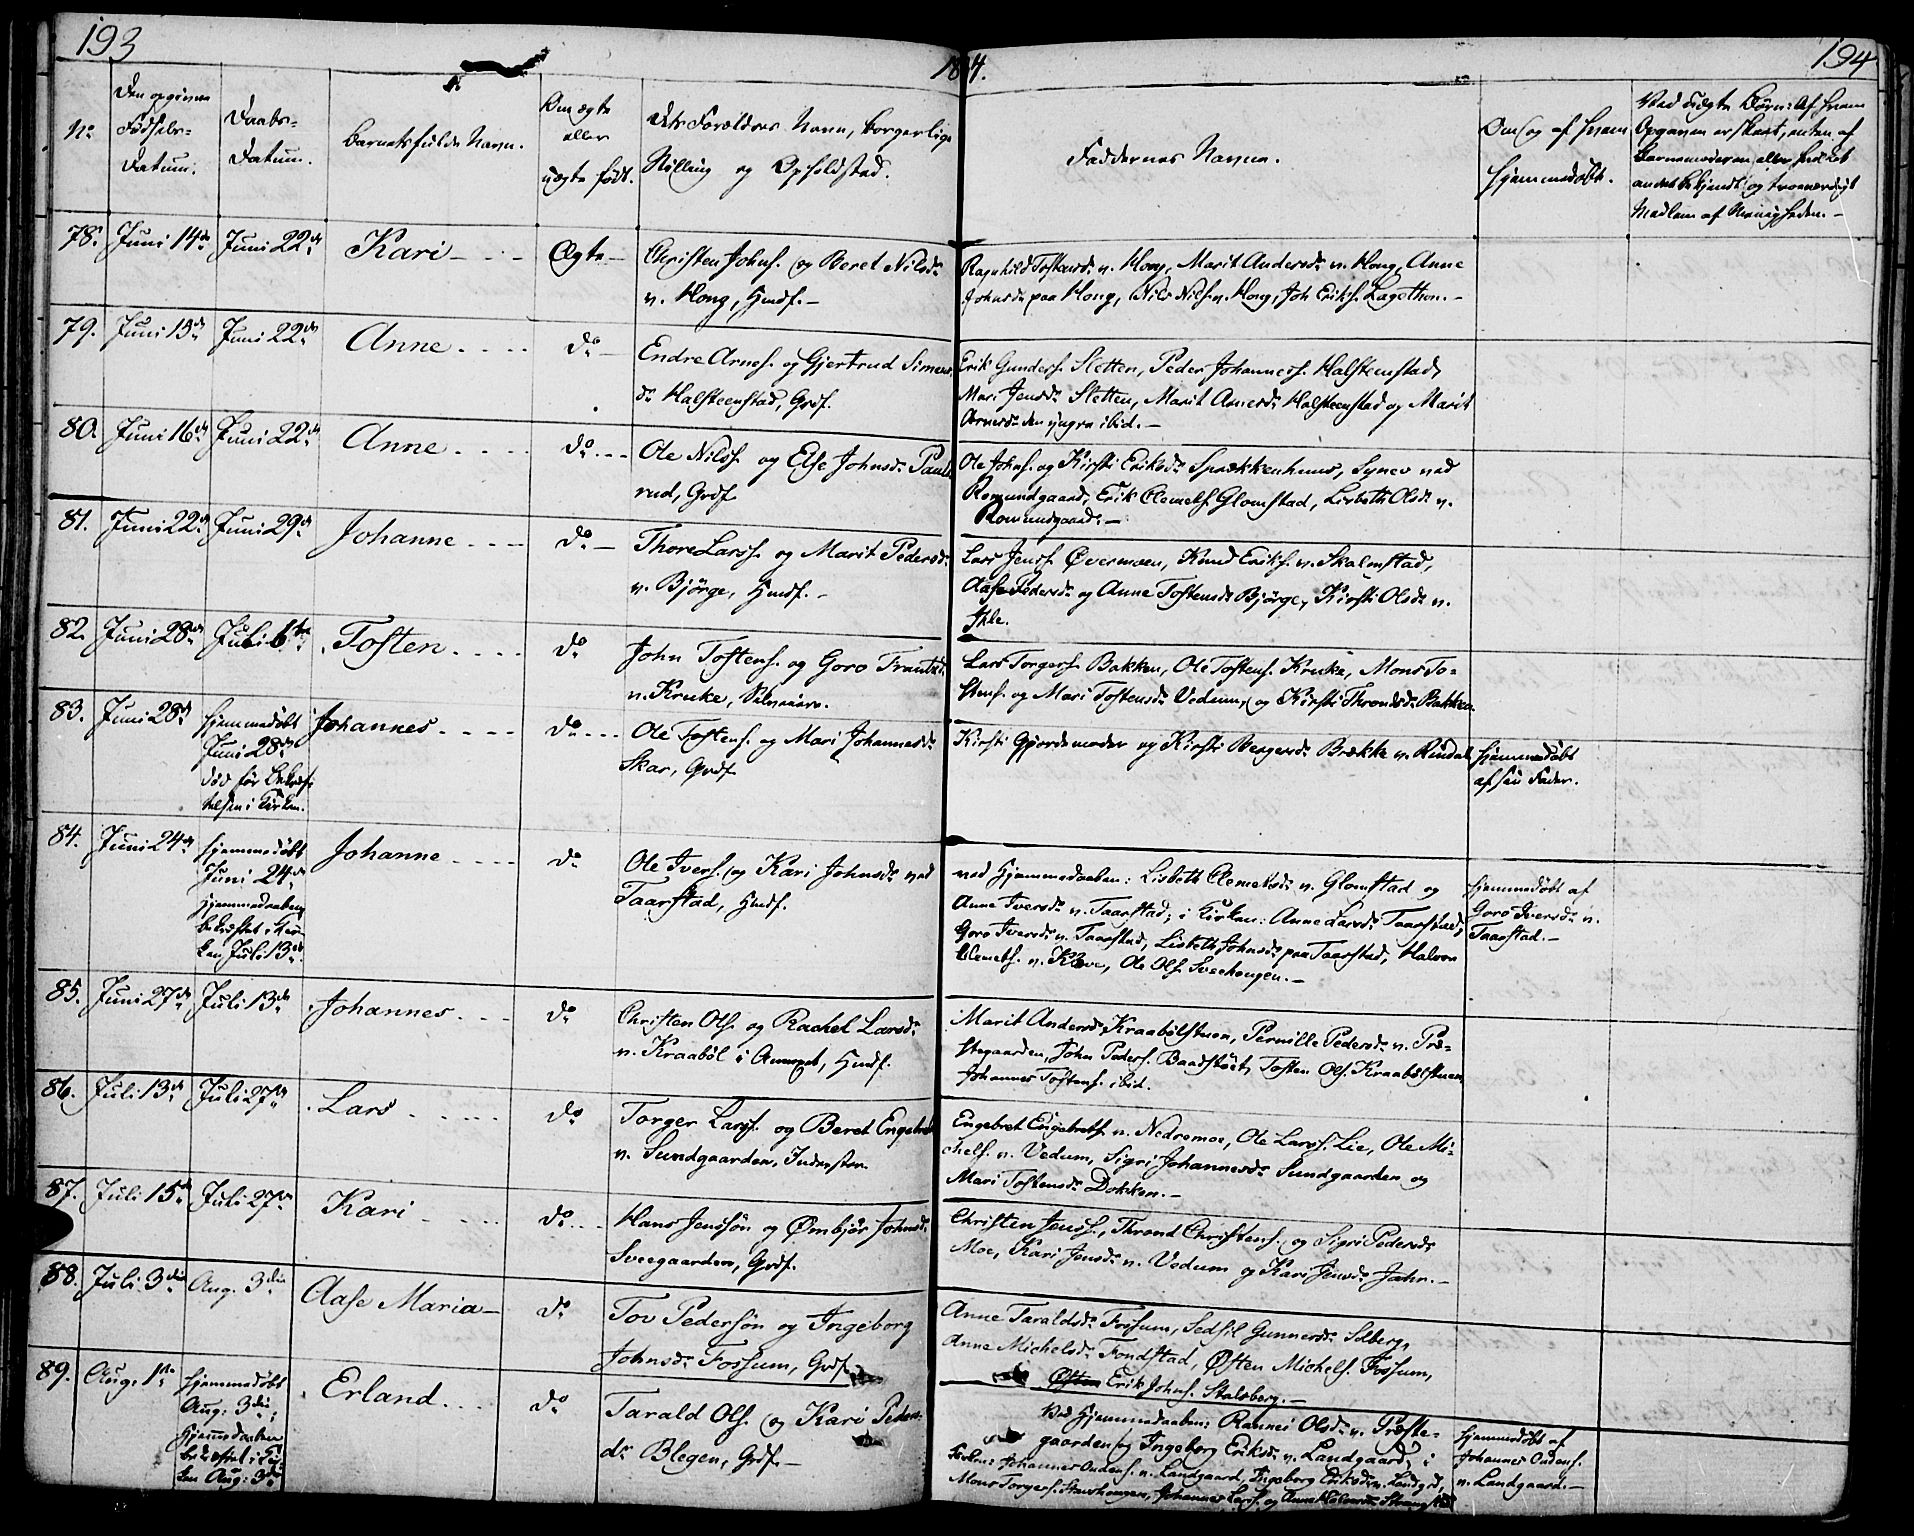 193
18 4.
194
No
Den opgivne
Fødsels-
Datum.
Daabs-
Datum.
Barnets fulde Navn.
Om ægte
eller
uægte født.
Dets Forældres Navn, borgerlige
Stilling og Opholdsted.
Faddernes Navne.
Om og af hvem
hjemmedøbt.
Ved uægte Børn: Af hvem
Opgaven er skeet, enten af
Barnemoderen eller hvilket
andet bekjendt og troeværdigt
Medlem af Menigheden.-
78. Juni 14de Juni 22de Kari - - - Ægte - Christen Johns. og Beret Nilsdr
v. Hong, Huusf. -
Ragnhild Tostensdr v. Hong, Marit Andersdr v. Hong, Anne
Johnsdr paa Hong, Nils Nils. v. Hong, Joh Eriks. Lagethon. -
79. Juni 15de Juni 22de Anne. . . . do - Endre Arnes. og Gjertrud Simens
dr Halsteenstad, Grdf.
Erik Gunders. Sletten, Peder Johanness. Halsteenstad,
Mari Jensdr Sletten, Marit Arnesdr Halsteenstad og Marit
Arnesdr den yngre ibid. -
80. Juni 16de Juni 22de Anne . . . . do . . . Ole Nilss. og Else Johnsdr Pauls
rud, Grdf.
Ole Johns. og Kirsti Eriksdr Sprækkenhuus, Synev ved
Romundgaard, Erik Clemets. Glomstad, Lisbeth Olsdr v.
Romundgaard. -
81. Juni 22de Juni 29de Johanne - - - - do - Thore Larss. og Marit Pedersdr
v. Bjørge, Huusf. -
Lars Jenss. Øvermoen, Knud Eriks. v. Skalmstad,
Aase Pedersdr og Anne Tostensdr Bjørge, Kirsti Olsdr v.
Ihle.
82. Juni 28de Juli 6te Tosten. . . . do John Tostens. og Goro Frantsdr
v. Kruke,
Lars Torgers. Bakken, Ole Tostens. Kruke, Mons To-
stens. og Mari Tostensdr Vedum, og Kirsti Throndsdr Bakken.
83. Juni 28de hjemmedøbt
Juni 28de
død før Bekræf-
telsen i Kirken.
Johannes . . . . do . . . Ole Tostens. og Mari Johannesdr
Skar, Grdf.
Kirsti Gjordemoder og Kirsti Bergersdr Brække v. Rindal
hjemmedøbt
af sin Fader.
84. Juni 24de hjemmedøbt
Juni 24de
hjemmedaaben
bekræftet i Kir-
ken Juli 13de
Johanne . . . . do Ole Ivers. og Kari Johnsdr ved
Taarstad, Huusf.
ved Hjemmedaaben: Lisbeth Clemetsdr v. Glomstad og
Anne Iversdr v. Taarstad; i Kirken: Anne Larsdr Taarstad,
Goro Iversdr v. Taarstad, Lisbeth Johnsdr paa Taarstad, Halvor
Clemets. v. Kløve, Ole Ols. Sveehougen. -
hjemmedøbt af
Goro Iversdr v.
Taarstad. -
85. Juni 27de Juli 13de Johannes . . . do Christen Ols. og Rachel Larsdr
v. Kraabøl i Annexet, Huusf.
Marit Andersdr Kraabølstuen, Pernille Pedersdr v. Præ-
stegaarden, John Peders. Baadstøet, Tosten Ols. Kraabølstuen,
Johannes Tostens. ibid.
86. Juli 13de Juli 27de Lars . . . . . do Torger Larss. og Beret Engebretsdr
v. Sundgaarden, Inderster.
Engebret Engebrets. v. Nedremoe, Ole Larss. Lie, Ole Mi-
chels. v. Vedum, Sigri Johannesdr Sundgaarden og
Mari Tostensdr Dokken. -
87. Juli 15de Juli 27de Kari . . . . do . . . Hans Jenssøn og Ømbjør Johnsdr
Sveegaarden, Grdf.
Christen Jenss., Thrond Christens. og Sigri Pedersdr
Moe, Kari Jensdr v. Vedum og Kari Jensdr Jahr. -
88. Juli 3die Aug. 3die Aase Maria - do Tov Pedersøn og Ingeborg
Johnsdr Fossum, Grdf.
Anne Taraldsdr Fossum, Sedsil Gunnersdr Solberg,
Anne Michelsdr Fondstad, Østen Michels. Fossum,
Østen Erik Johns. Stalsberg. -
89. Aug. 1ste hjemmedøbt
Aug. 3die;
Hjemmedaaben
bekræftet i Kir-
ken Aug: 3die
Erland . . . do Tarald Ols. og Kari Peders
dr Blegen, Grdf. -
Ved Hjemmedaaben: Rannei Olsdr v. Præste-
gaarden og Ingeborg Eriksdr v. Landgaard; i
Kirken: Johannes Ondens. v. Landgaard, Ingeborg Eriksdr v. Landgrd,
Mons Torgers. Staushougen, Johannes Larss. og Anne
hjemmedøbt af
Johannes Ondens.
v. Landgaard. -